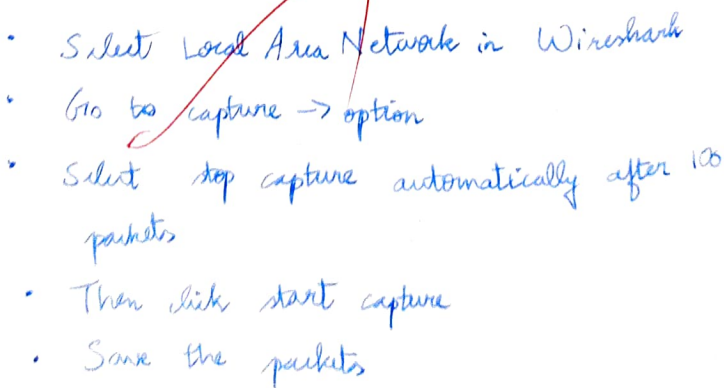 • Select Local Area Network in Wireshark
• Go to capture → option
• Select stop capture automatically after 100
packets
• Then click start capture
• Save the packets